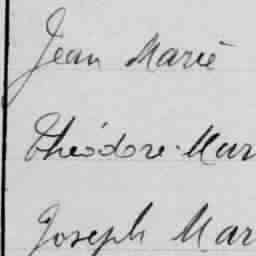 Jean Marie
Théodore Mar
Joseph Mar